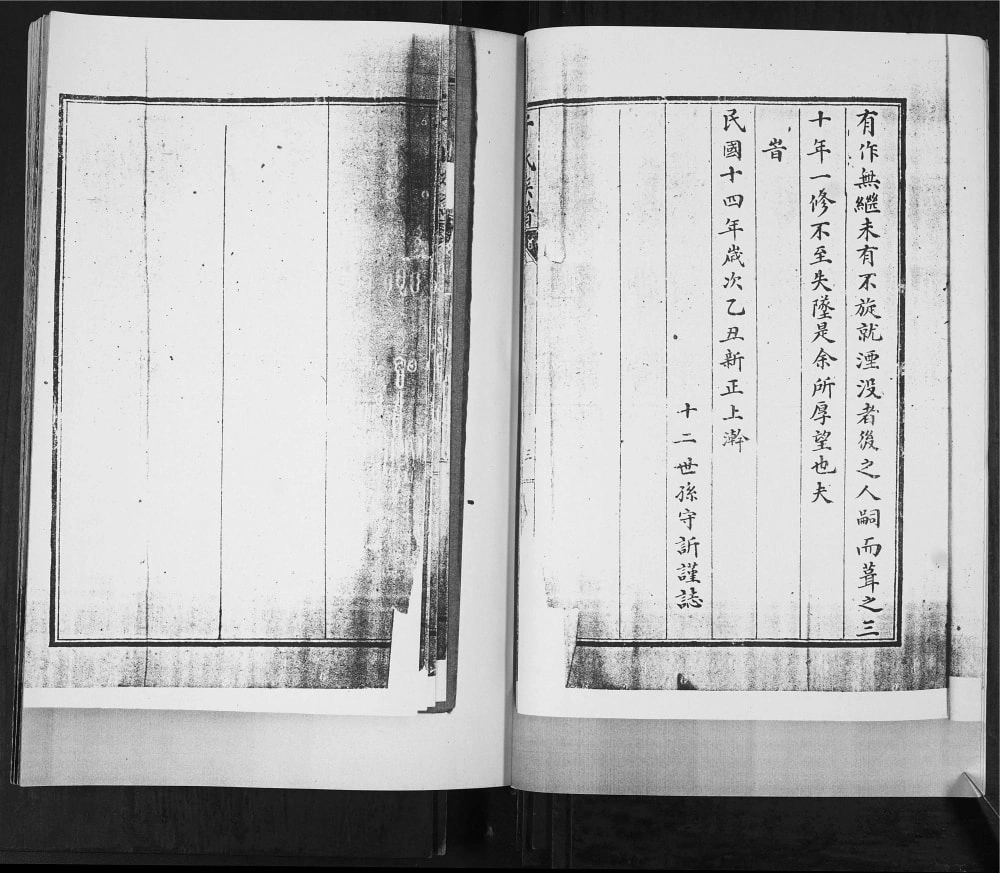 有作無繼未有不旋就湮没者後之人嗣而葺之三
十年一修不至失墜是余所厚望也夫
旹
民國十四年歲次乙丑新正上澣
十二世孫守訢謹誌
氏族譜
三